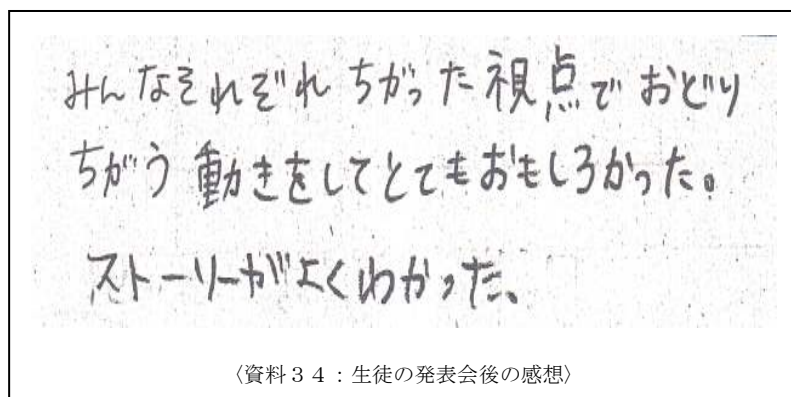 みんなそれぞれ ちがった視点で おどり
ちがう動きをしてとてもおもしろかった。
ストーリーがよくわかった、
〈資料３４：生徒の発表会後の感想〉